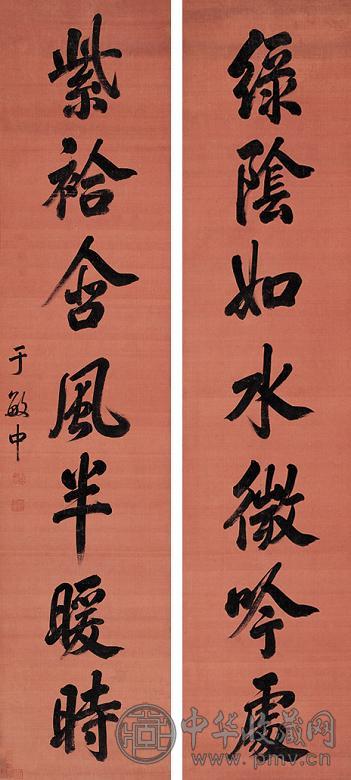 綠陰如水微吟處
紫袷含風半暖時
于敏中
中华收藏网
www.pmv.cn